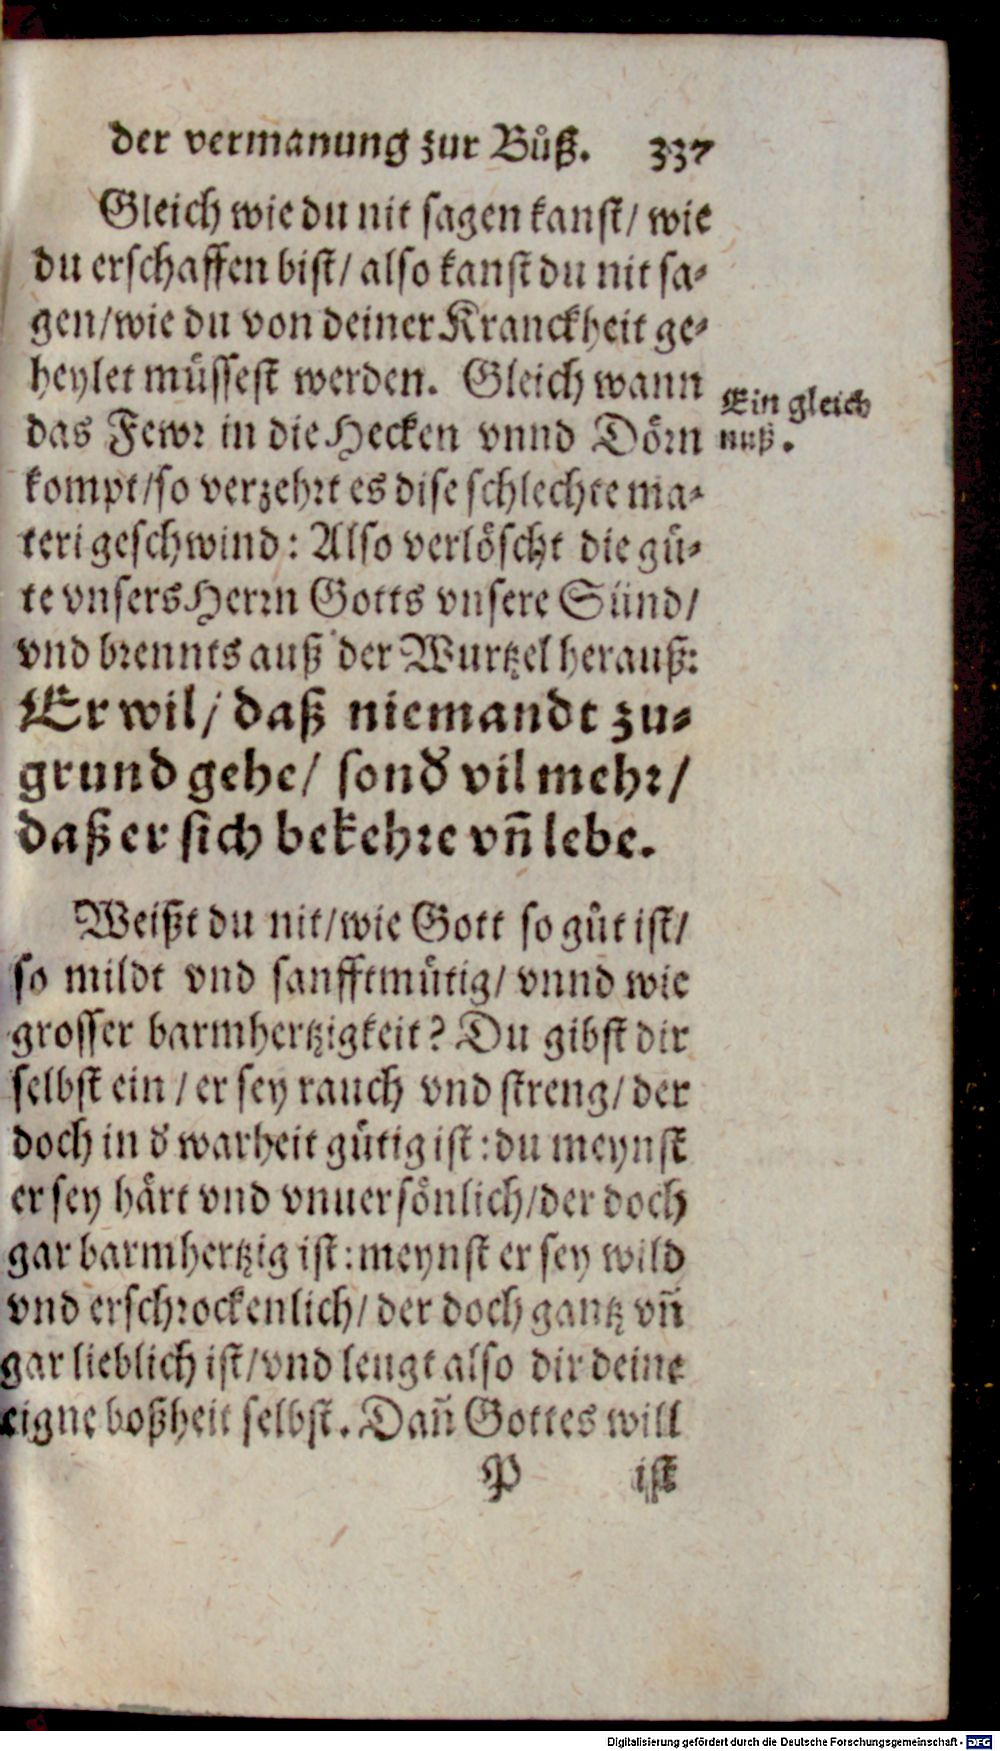 der vermanung zur Bůß. 337
Gleich wie du nit sagen kanst/ wie
du erschaffen bist/ also kanst du nit sa⸗
gen/wie du von deiner Kranckheit ge⸗
heylet müssest werden. Gleich wann
das Fewꝛ in die Hecken vnnd Döꝛn
kompt/so verzehꝛt es dise schlechte ma⸗
teri geschwind: Also verlöscht die gü⸗
te vnsers Herꝛn Gotts vnsere Sünd/
vnd bꝛennts auß der Wurtzel herauß:
Er wil/ daß niemandt zu⸗
grund gehe/ sonď vil mehꝛ/
daß er sich bekehꝛe vñ lebe.
Ein gleich
nuß.
Weißt du nit/wie Gott so gůt ist/
so mildt vnd sanfftmütig/ vnnd wie
grosser barmhertzigkeit? Du gibst dir
selbst ein / er sey rauch vnd streng/ der
doch in ď warheit gütig ist: du meynst
er sey härt vnd vnuersönlich/der doch
gar barmhertzig ist: meynst er sey wild
vnd erschꝛockenlich/ der doch gantz vñ
gar lieblich ist/vnd leugt also dir deine
eigne boßheit selbst. Dañ Gottes will
P ist
Digitalisierung gefördert durch die Deutsche Forschungsgemeinschaft - DFG